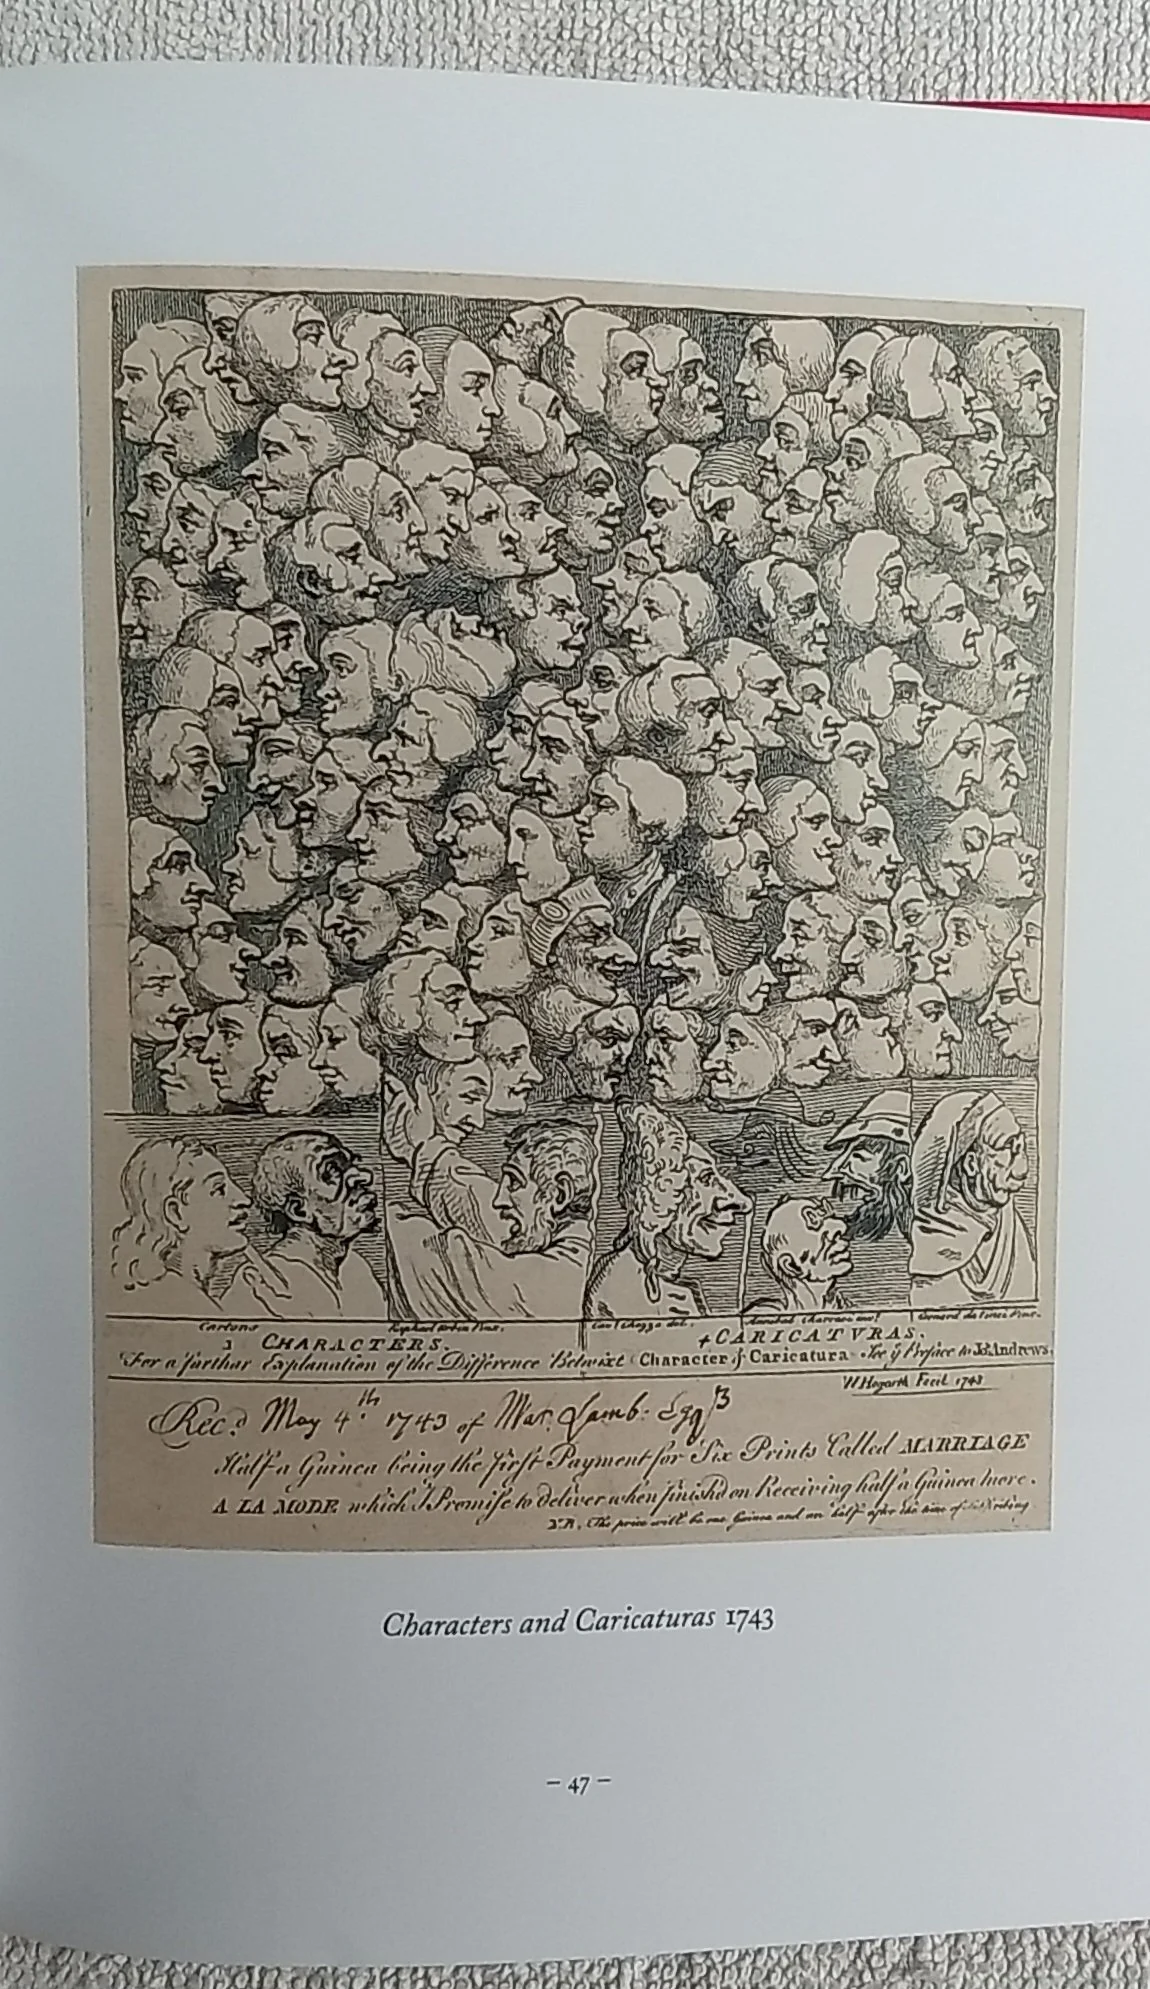 Cartons
Raphael Urbin Pinx.
Cav.l Chezze del.
Annibal Charracci
Leonard da Vinci Pinx.
3 CHARACTERS.
4 CARICATVRAS.
For a farthar Explanation of the Difference Betwixt Character & Caricatura See ye Preface to Jos. Andrews.
W. Hogarth Fecit 1743
Rec.d May 4.th 1743 of Mat. Lamb: Esqr
Half a Guinea being the first Payment for Six Prints Called MARRIAGE
A LA MODE which I Promise to deliver when finish'd on Receiving half a Guinea more.
N.B. The price will be one Guinea and an half after the time of Subscribing
Characters and Caricaturas 1743
– 47 –